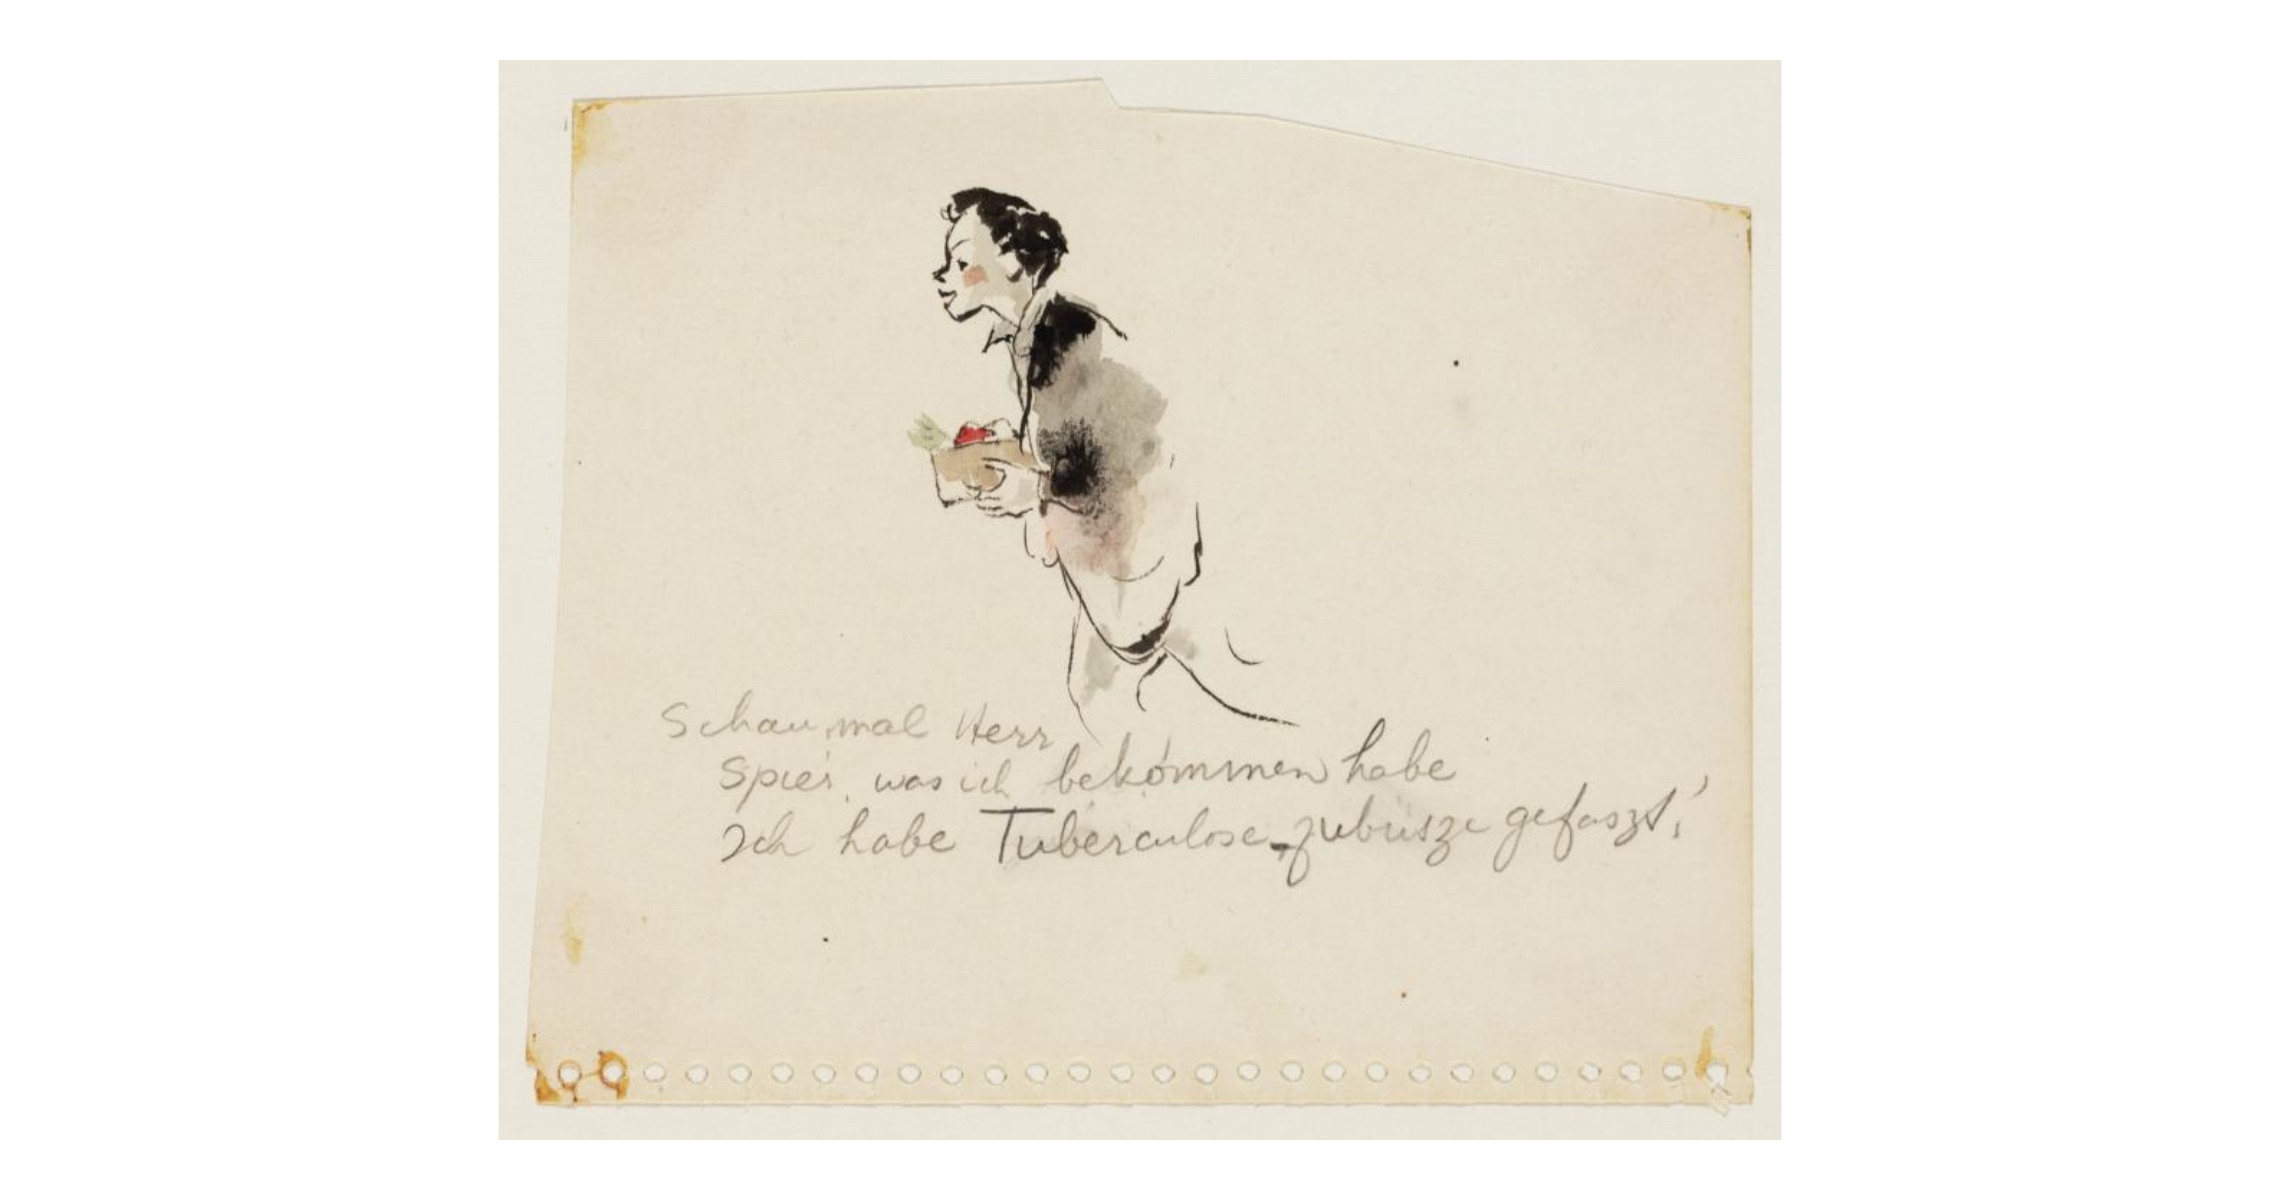 Schau mal Herr
Spier, was ich bekommen habe
Ich habe Tuberculose-zubüsze gefaszt!